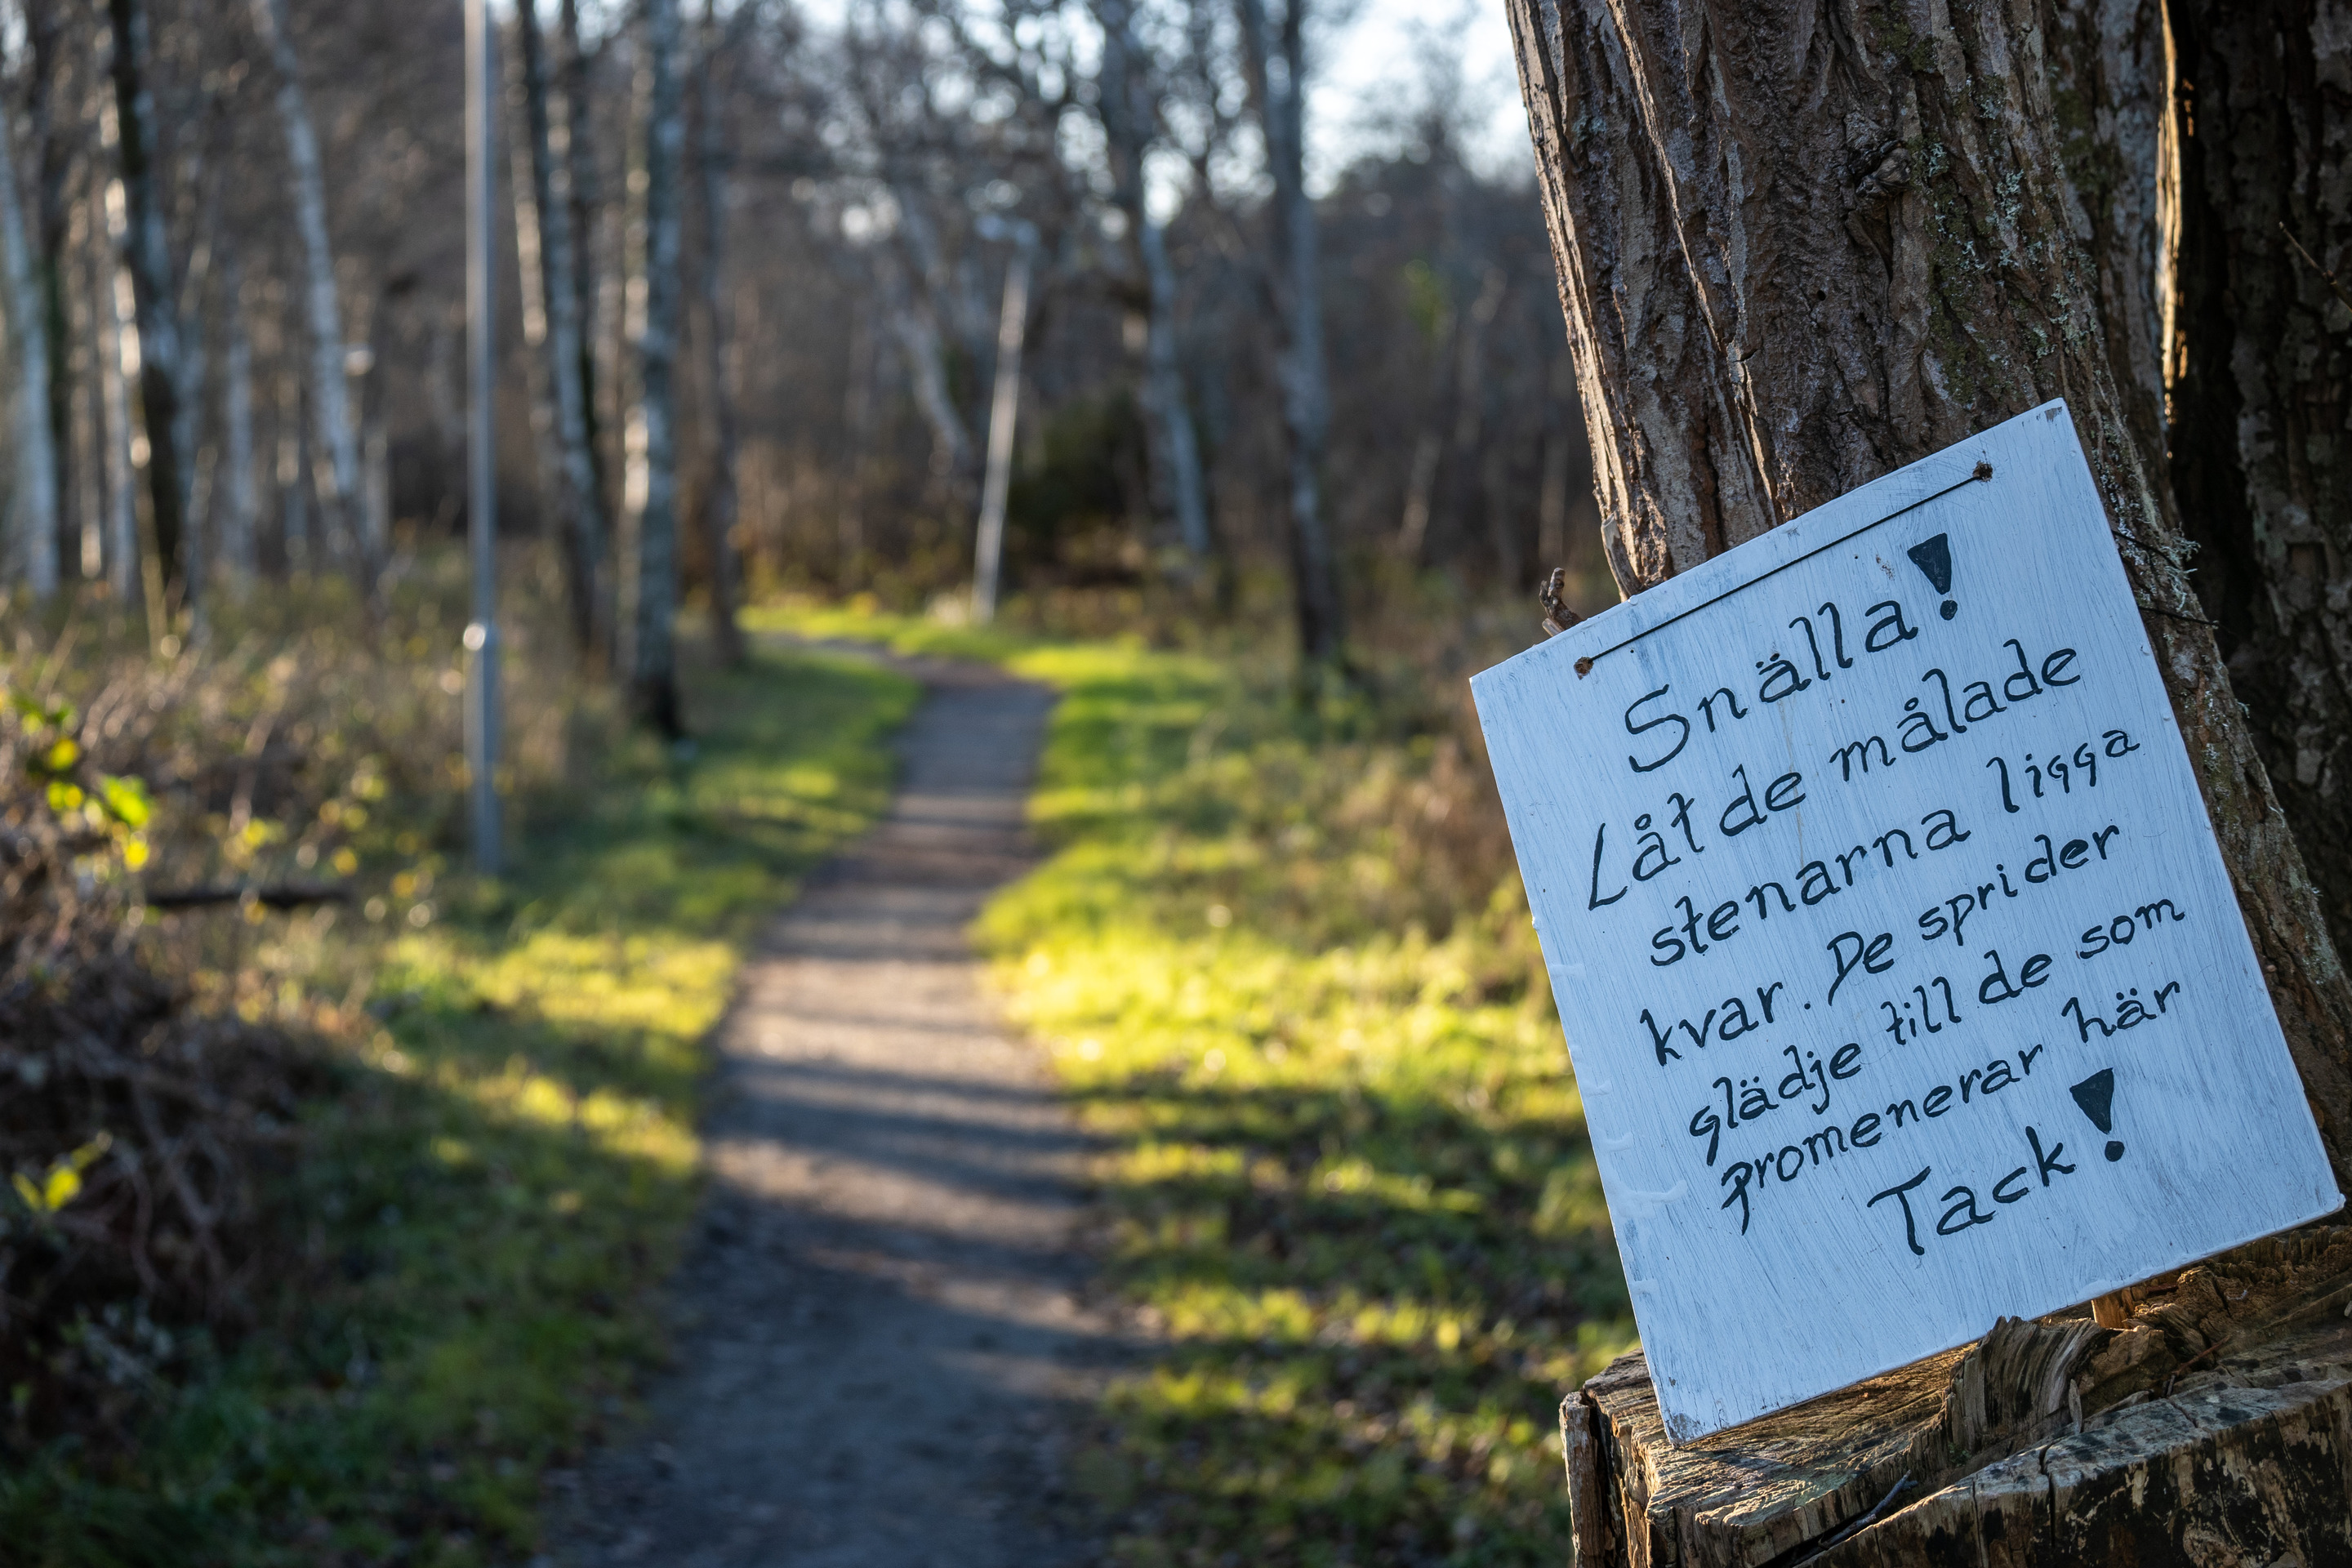 Snälla!
Låt de målade
stenarna ligga
kvar. De sprider
glädje till de som
promenerar här
Tack!